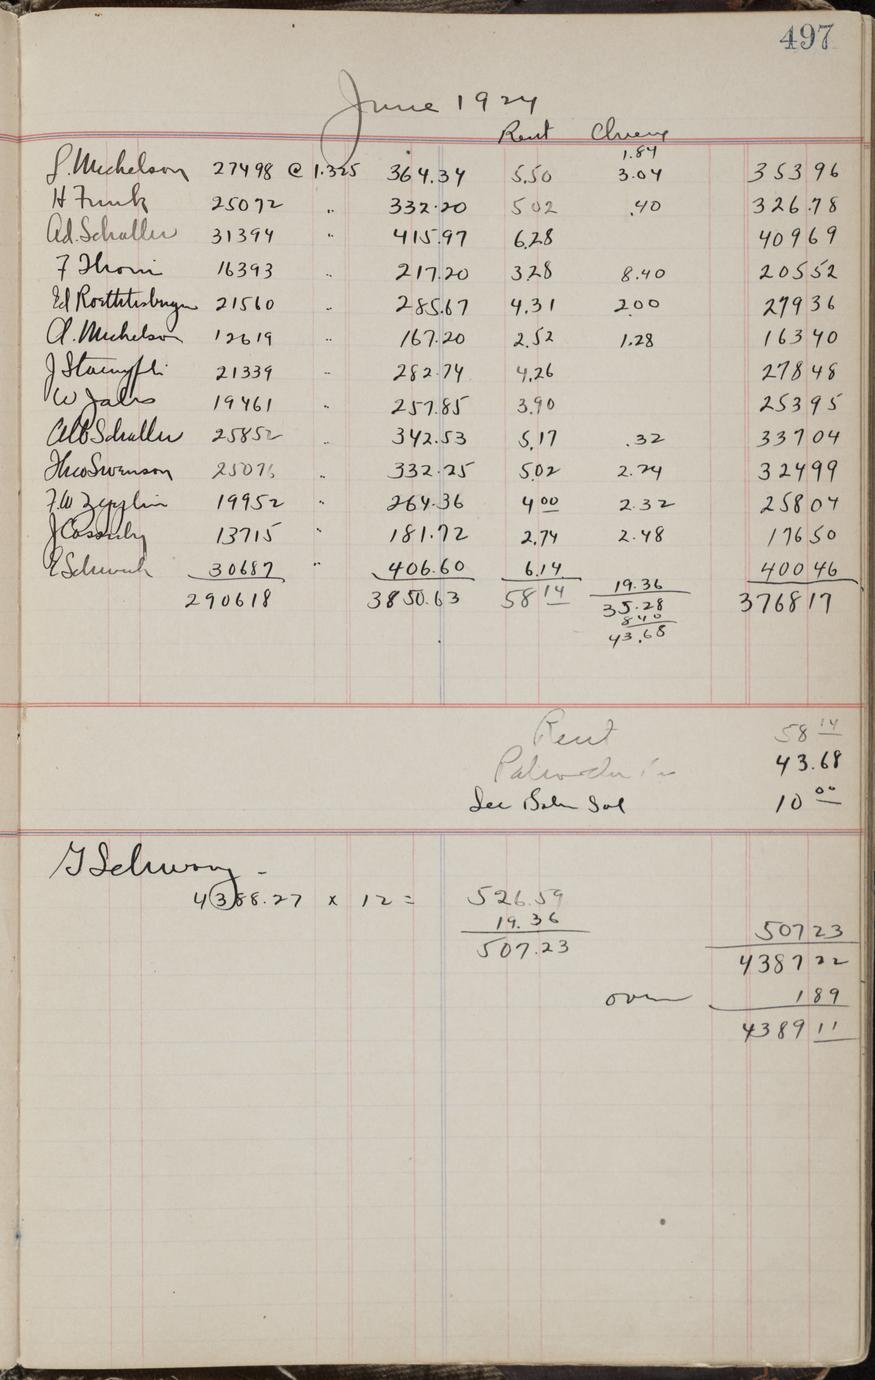 497
June 1924
Rent Cheese
1.84
J. Michelson 27498 @ 1.325 364.34 5.50 3.04 353 96
H Funk 25072 " 332.20 5 02 .40 326.78
Ad. Schaller 31394 " 415.97 6.28 409 69
F Thoni 16393 " 217.20 3.28 8.40 205 52
Ed 21560 " 285.67 4.31 2.00 279 36
A. Michelson 12619 " 167.20 2.52 1.28 163 40
J Stampfli 21339 " 282.74 4.26 278 48
W Jahs 19461 " 257.85 3.90 253 95
Alb Schaller 25852 " 342.53 5.17 .32 337 04
Theo Swenson 25076 " 332.25 5.02 2.24 324 99
F.W Zepplin 19952 " 264.36 4 00 2.32 258 04
J Cassidy 13715 " 181.72 2.74 2.48 176 50
E Schwab 30687 " 406.60 6.14 400 46
290618 3850.63 58 14 19.36 3768 17
35.28
8 40
43.68
Rent 58 14
43.68
Sal 10 00
4388.27 x 12 = 526.59
19.36 507 23
507.23 4387 22
over 1 89
4389 11